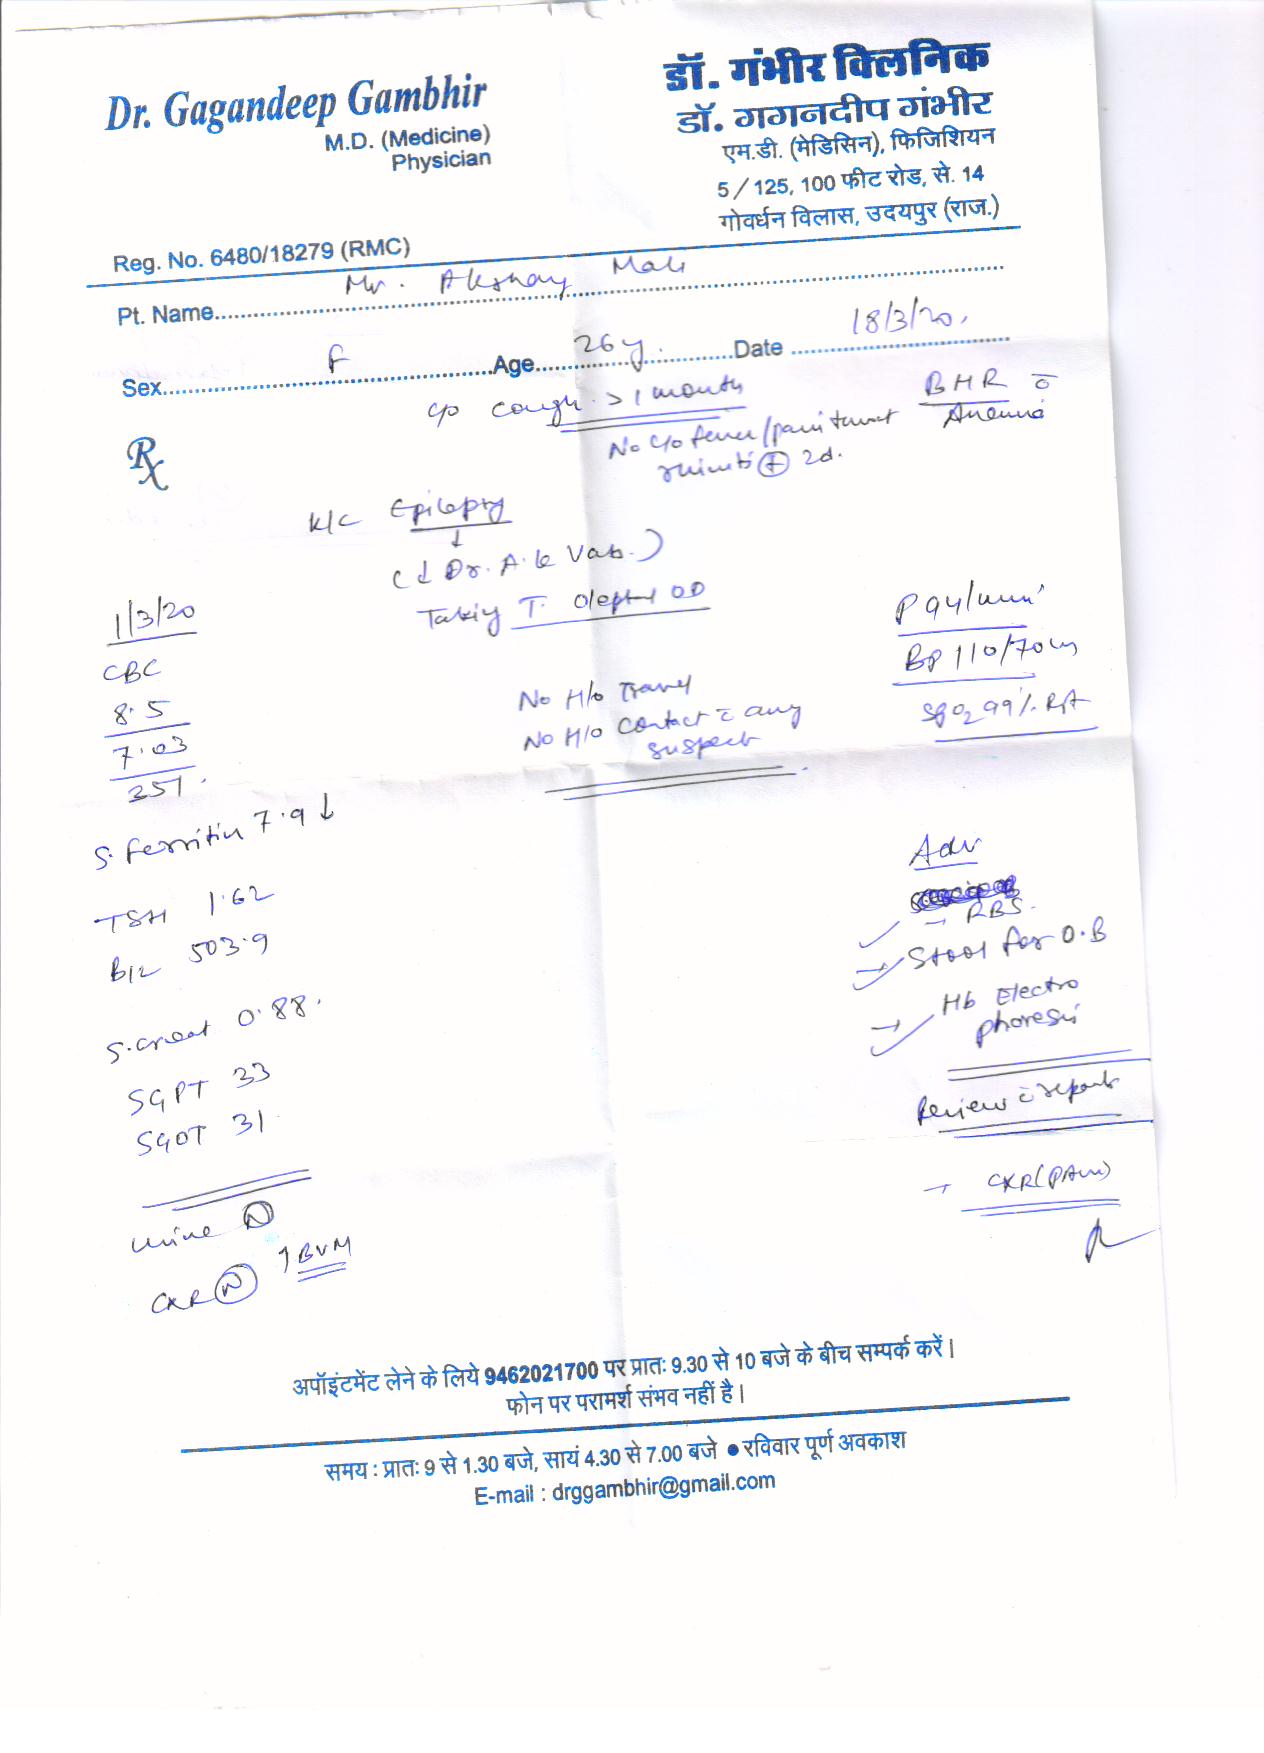 Dr. Gagandeep Gambhir
M.D. (Medicine)
Physician
Reg. No. 6480/18279 (RMC)
डॉ. गंभीर क्लिनिक
डॉ. गगनदीप गंभीर
एम.डी. (मेडिसिन), फिजिशियन
5/125, 100 फीट रोड, से. 14
गोवर्धन विलास, उदयपुर (राज.)
Pt. Name Mr. Akshay Mali
Sex F Age 26y. Date 18/3/20.
Rx
c/o cough > 1 month
No c/o fever/ throat
+ 2d.
BHR c̄
Anemia
K/C Epilepsy
↓
(↓ Dr. A. K Vats.)
Taking T. Oleptal OD
No H/o Travel
No H/o Contact c̄ any
suspect
P 94/min
BP 110/70
SpO2 99% RA
1/3/20
CBC
8.5
7.03
251.
S. Ferritin 7.9 ↓
TSH 1.62
B12 503.9
S. creat 0.88.
SGPT 33
SGOT 31
Urine N
CXR N ↑ BVM
Adv
→ RBS.
→ Stool for O.B
→ Hb Electro
phoresis
Review c̄ reports
→ CXR (PA)
अपॉइंटमेंट लेने के लिये 9462021700 पर प्रातः 9.30 से 10 बजे के बीच सम्पर्क करें।
फोन पर परामर्श संभव नहीं है।
समय : प्रातः 9 से 1.30 बजे, सायं 4.30 से 7.00 बजे ● रविवार पूर्ण अवकाश
E-mail : drggambhir@gmail.com